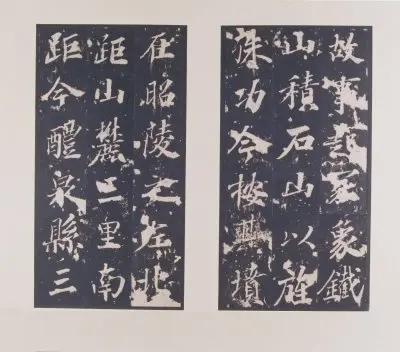 故事起冢象鐵
山積石山以旌
殊功今按墳
在昭陵之左北
距山麓二里南
距今醴泉縣三